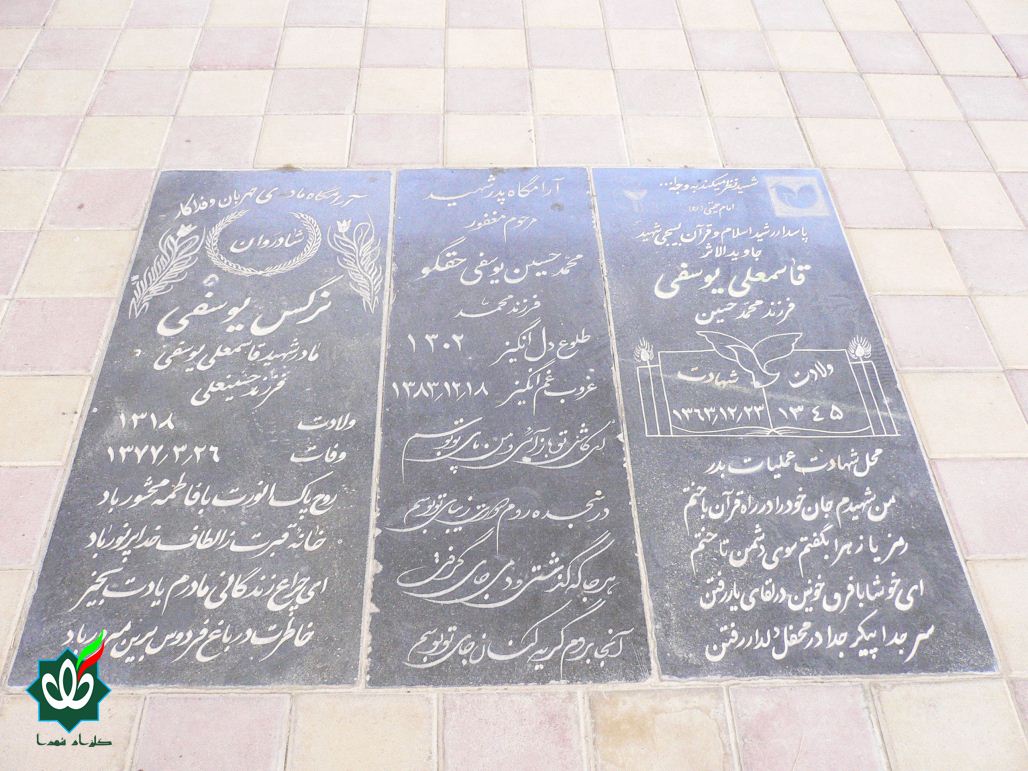 شهید نظر میکند به وجه الله...
امام خمینی (ره)
پاسدار رشید اسلام و قرآن بسیجی شهید
جاوید الاثر
قاسمعلی یوسفی
فرزند محمد حسین
ولادت
شهادت
۱۳۴۵
۱۳۶۳,۱۲,۲۳
محل شهادت عملیات بدر
من شهیدم جان خود را در راه قرآن باختم
رمز یا زهرا بگفتم سوی دشمن تاختم
ای خوشا با فرق خونین در لقای یار رفتن
سر جدا پیکر جدا در محفل دلدار رفتن
آرامگاه پدر شهید
مرحوم مغفور
محمد حسین یوسفی حقگو
فرزند محمد
طلوع دل انگیز ۱۳۰۲
غروب غم انگیز ۱۳۸۳,۱۲,۱۸
ای کاش تو باز آیی و من پای تو بوسم
در سجده روم صورت زیبای تو بوسم
هر جا که گذشتی و دمی جای گرفتی
آنجا بروم گریه کنان جای تو بوسم
آرامگاه مادری مهربان و فداکار
شادروان
نرگس یوسفی
مادر شهید قاسمعلی یوسفی
فرزند حسینعلی
ولادت ۱۳۱۸
وفات ۱۳۷۷,۳,۲۶
روح پاک انورت با فاطمه محشور باد
خانه قبرت ز الطاف خدا پر نور باد
ای چراغ زندگانی مادرم یادت بخیر
خاطرت در باغ فردوس برین مسرور باد
گلزار شهدا